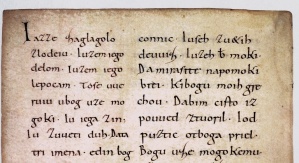 Iazze zaglagolo
zlodeiu. Iuzem iego
delom. Iuzem iego
lepocam. Tose uue
ruiu ubog uze mo
goki. Iu iega zin.
Iu zuueti duh. Data
tri imena. edin bog
connic. Iuzeh
deuuiz. Iuzeh moki.
napomoki
biti. Kibogu moih
chou. Dabim cisto iz
pouued ztuoril. Iod
puztic otboga priel
Bogu mogokemu